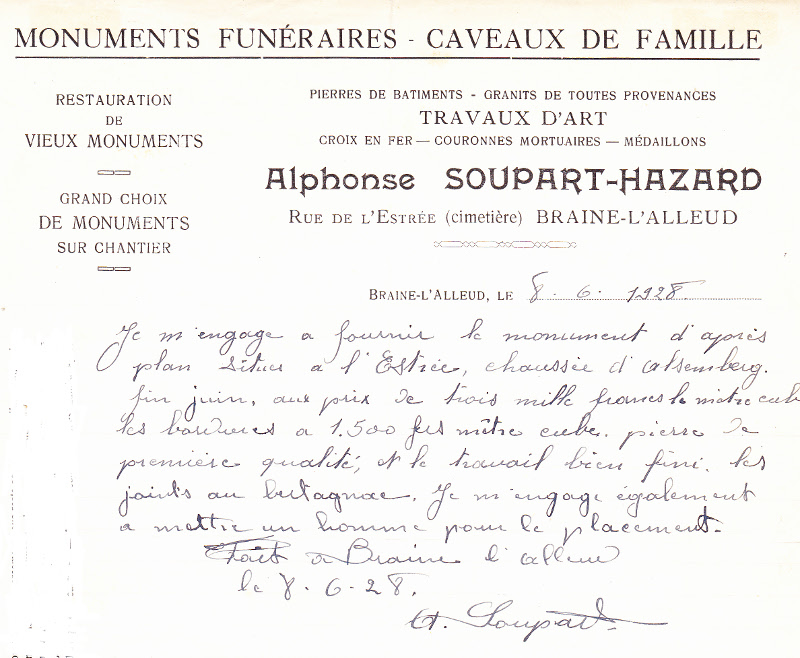 MONUMENTS FUNÉRAIRES - CAVEAUX DE FAMILLE
RESTAURATION
DE
VIEUX MONUMENTS
GRAND CHOIX
DE MONUMENTS
SUR CHANTIER
PIERRES DE BATIMENTS - GRANITS DE TOUTES PROVENANCES
TRAVAUX D'ART
CROIX EN FER — COURONNES MORTUAIRES — MÉDAILLONS
Alphonse SOUPART-HAZARD
RUE DE L'ESTRÉE (cimetière) BRAINE-L'ALLEUD
BRAINE-L'ALLEUD, LE 8. 6. 1928
Je m'engage a fournir le monument d'après
plan situé a l'Estrée, chaussée d'alsemberg.
fin juin, aux prix de trois mille francs le mètre cube
les bordures a 1.500 frs mètre cube. pierre de
première qualité, et le travail bien fini. les
joints au . Je m'engage également
a mettre un homme pour le placement.
Fait a Braine l'alleud
le 8. 6. 28.
A. Soupart